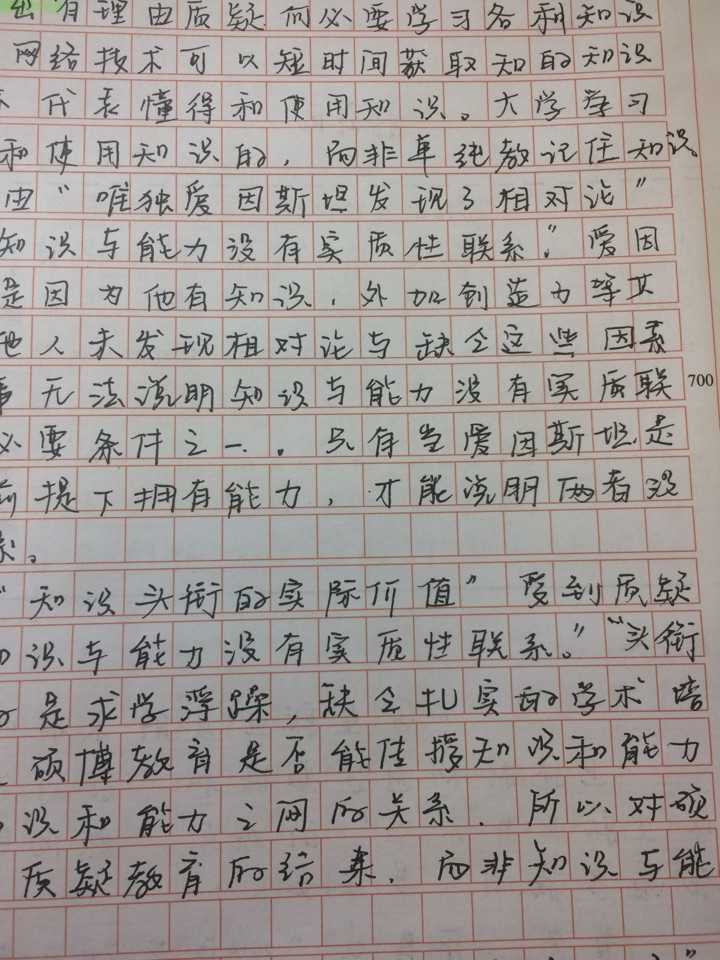 出有理由质疑何必要学习各种知识
网络技术可以短时间获取知的知识
代表懂得和使用知识。大学学习
和使用知识的,而非单纯教记住知识。
由“唯独爱因斯坦发现了相对论”
知识与能力没有实质性联系。”爱因
是因为他有知识,外加创造力等其
他人未发现相对论与缺乏这些因素
无法说明知识与能力没有实质联
700
必要条件之一。只有当爱因斯坦是
前提下拥有能力,才能说明两者没
系。
“知识头衔的实际价值”受到质疑
识与能力没有实质性联系。”“头衔
是求学浮躁,缺乏扎实的学术培
硕博教育是否能传授知识和能力
识和能力之间的关系.所以对硕
质疑教育的结果.而非知识与能